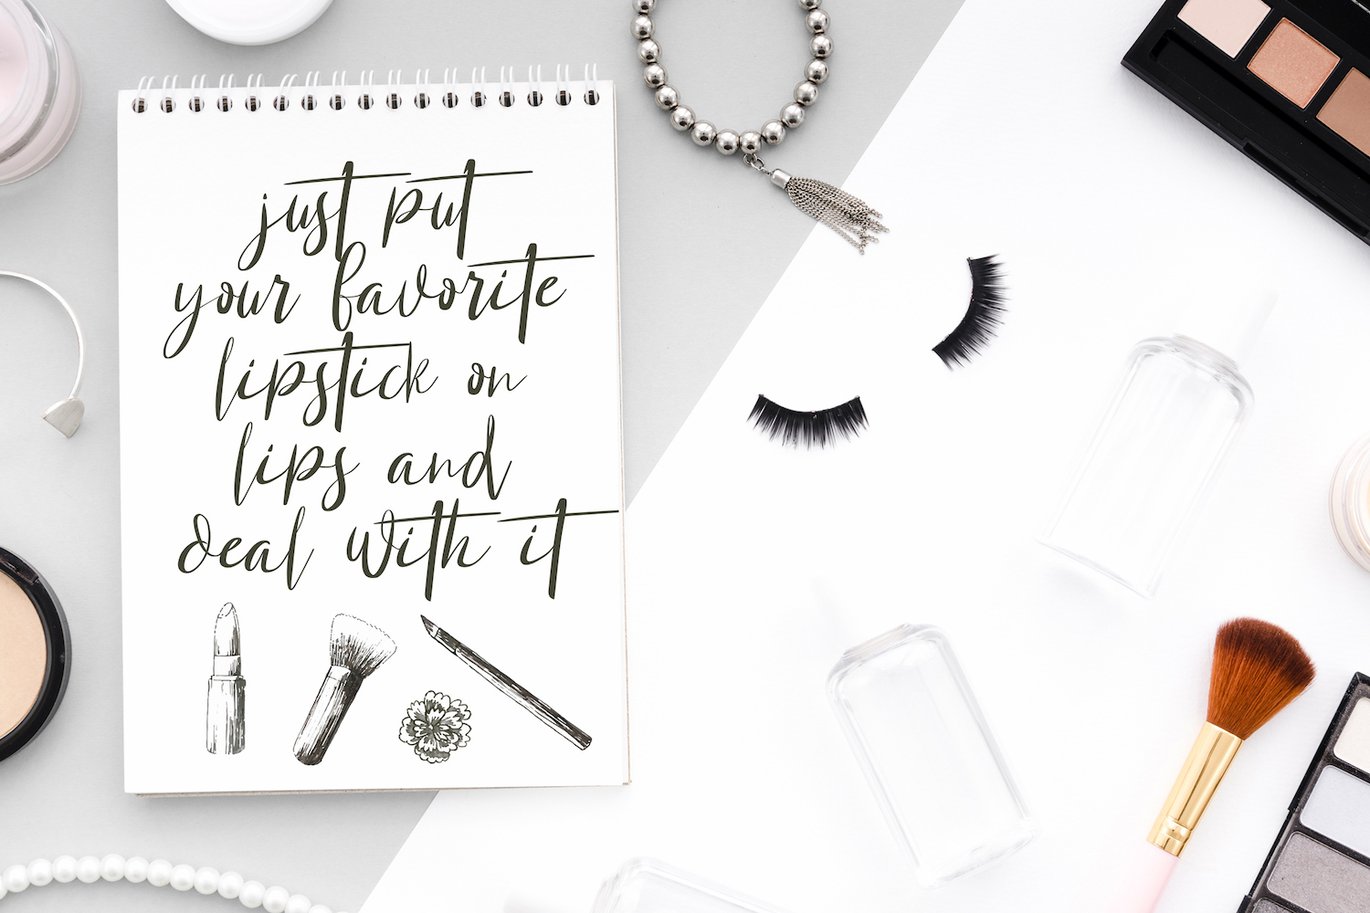 just put
your favorite
lipstick on
lips and
deal with it